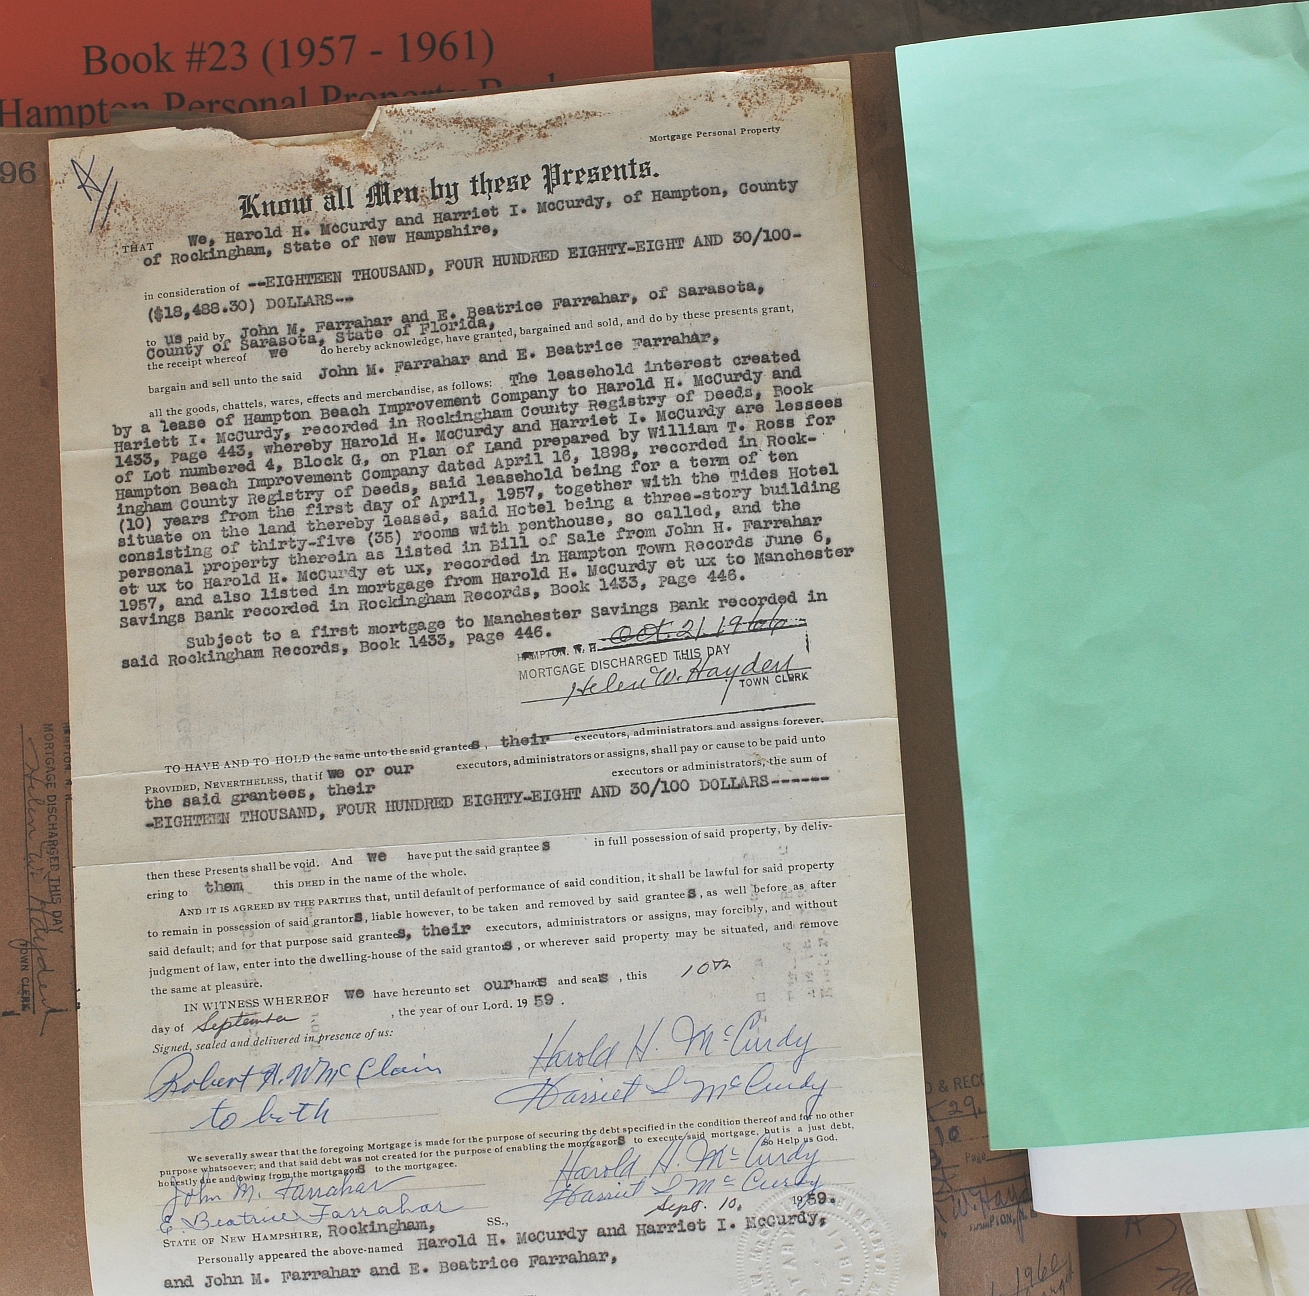 Book #23 (1957 - 1961)
Hampton Personal Property
96
Mortgage Personal Property
Know all Men by these Presents.
THAT We, Harold H. McCurdy and Harriet I. McCurdy, of Hampton, County
of Rockingham, State of New Hampshire,
in consideration of --EIGHTEEN THOUSAND, FOUR HUNDRED EIGHTY-EIGHT AND 30/100-
($18,488.30) DOLLARS--
to us paid by John M. Farrahar and E. Beatrice Farrahar, of Sarasota,
County of Sarasota, State of Florida,
the receipt whereof we do hereby acknowledge, have granted, bargained and sold, and do by these presents grant,
bargain and sell unto the said John M. Farrahar and E. Beatrice Farrahar,
all the goods, chattels, wares, effects and merchandise, as follows: The leasehold interest created
by a lease of Hampton Beach Improvement Company to Harold H. McCurdy and
Hariett I. McCurdy, recorded in Rockingham County Registry of Deeds, Book
1433, Page 443, whereby Harold H. McCurdy and Harriet I. McCurdy are lessees
of Lot numbered 4, Block G, on Plan of Land prepared by William T. Ross for
Hampton Beach Improvement Company dated April 16, 1898, recorded in Rock-
ingham County Registry of Deeds, said leasehold being for a term of ten
(10) years from the first day of April, 1957, together with the Tides Hotel
situate on the land thereby leased, said Hotel being a three-story building
consisting of thirty-five (35) rooms with penthouse, so called, and the
personal property therein as listed in Bill of Sale from John H. Farrahar
et ux to Harold H. McCurdy et ux, recorded in Hampton Town Records June 6,
1957, and also listed in mortgage from Harold H. McCurdy et ux to Manchester
Savings Bank recorded in Rockingham Records, Book 1433, Page 446.
Subject to a first mortgage to Manchester Savings Bank recorded in
said Rockingham Records, Book 1433, Page 446.
HAMPTON, N. H. Oct. 21 1966
MORTGAGE DISCHARGED THIS DAY
Helen W. Hayden
TOWN CLERK
TO HAVE AND TO HOLD the same unto the said grantees, their executors, administrators and assigns forever.
PROVIDED, NEVERTHELESS, that if we or our executors, administrators or assigns, shall pay or cause to be paid unto
the said grantees, their executors or administrators, the sum of
-EIGHTEEN THOUSAND, FOUR HUNDRED EIGHTY-EIGHT AND 30/100 DOLLARS------
then these Presents shall be void. And we have put the said grantees in full possession of said property, by deliv-
ering to them this DEED in the name of the whole.
AND IT IS AGREED BY THE PARTIES that, until default of performance of said condition, it shall be lawful for said property
to remain in possession of said grantors, liable however, to be taken and removed by said grantees, as well before as after
said default; and for that purpose said grantees, their executors, administrators or assigns, may forcibly, and without
judgment of law, enter into the dwelling-house of the said grantors, or wherever said property may be situated, and remove
the same at pleasure.
IN WITNESS WHEREOF we have hereunto set our hands and seals, this 10th
day of September, the year of our Lord. 1959.
Signed, sealed and delivered in presence of us:
Robert A. W McClain
to both
Harold H. McCurdy
Harriet I McCurdy
We severally swear that the foregoing Mortgage is made for the purpose of securing the debt specified in the condition thereof and for no other
purpose whatsoever; and that said debt was not created for the purpose of enabling the mortgagors to execute said mortgage, but is a just debt,
honestly due and owing from the mortgagors to the mortgagee. So Help us God.
John M. Farrahar
E. Beatrice Farrahar
Harold H. McCurdy
Harriet I McCurdy
STATE OF NEW HAMPSHIRE, Rockingham, SS., Sept. 10, 1959.
Personally appeared the above-named Harold H. McCurdy and Harriet I. McCurdy,
and John M. Farrahar and E. Beatrice Farrahar,
MORTGAGE DISCHARGED THIS DAY
Helen W. Hayden
TOWN CLERK